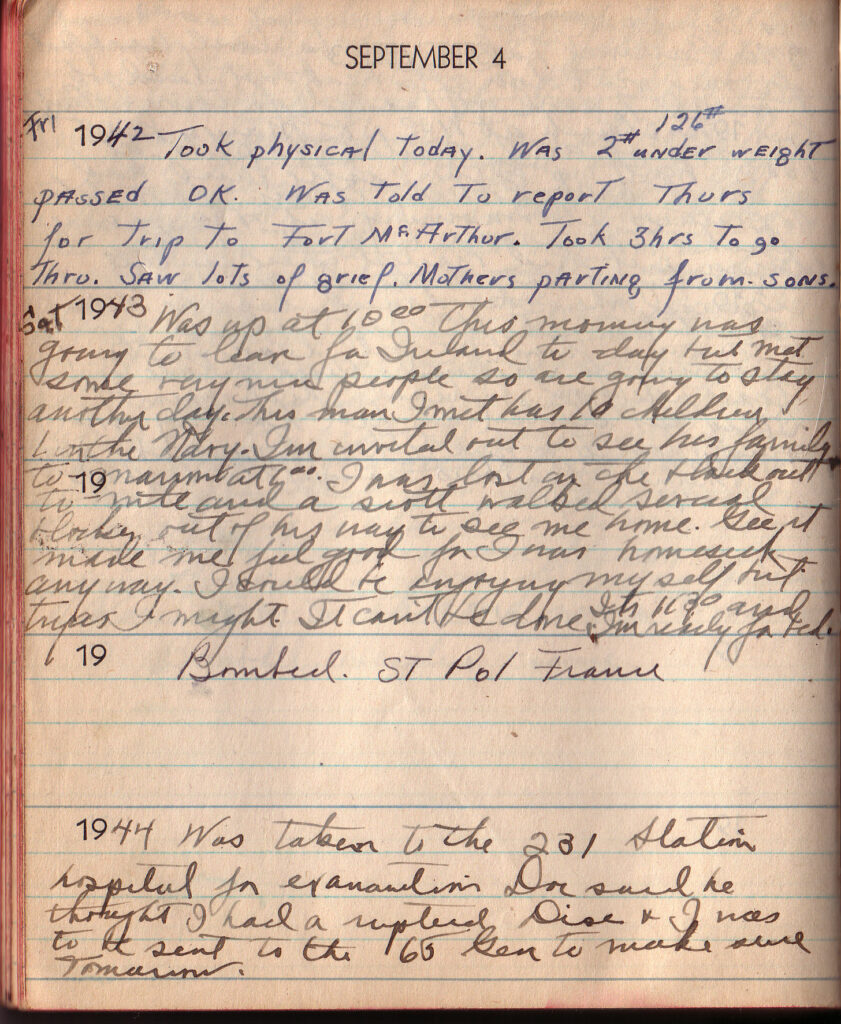 SEPTEMBER 4
Fri 1942 Took physical today. Was 2# under weight 126#
passed OK. Was told to report Thurs
for trip to Fort McArthur. Took 3hrs to go
thru. Saw lots of grief. Mothers parting from sons.
Sat 1943 Was up at 10 00 this morning was
going to leave for Ireland to day but met
some very nice people so are going to stay
another day. This man I met has 10 children
1 in the Navy. Im invited out to see his family
to marrow at 1 00. I was lost in the black out
19 to nite and a scott walked several
blocks out of his way to see me home. Gee it
made me feel good for I was homesick
anyway. I could be enjoying myself but
try as I might It cant be done. Its 11 30 and
Im ready for bed.
19 Bombed. ST Pol France
1944 Was taken to the 231 Station
hospital for examanation Doc said he
thought I had a rupterd Disc & I was
to be sent to the 65 Gen to make sure
Tomarrow.